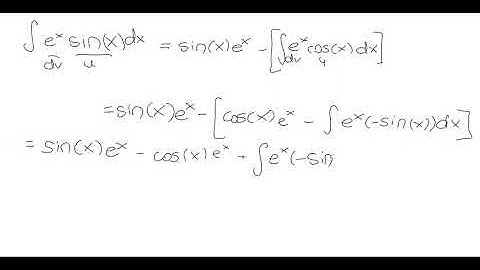 ∫ e^x sin(x) dx = sin(x) e^x - [∫ e^x cos(x) dx]
dv u dv u
= sin(x) e^x - [cos(x) e^x - ∫ e^x (-sin(x)) dx]
= sin(x) e^x - cos(x) e^x + ∫ e^x (-sin